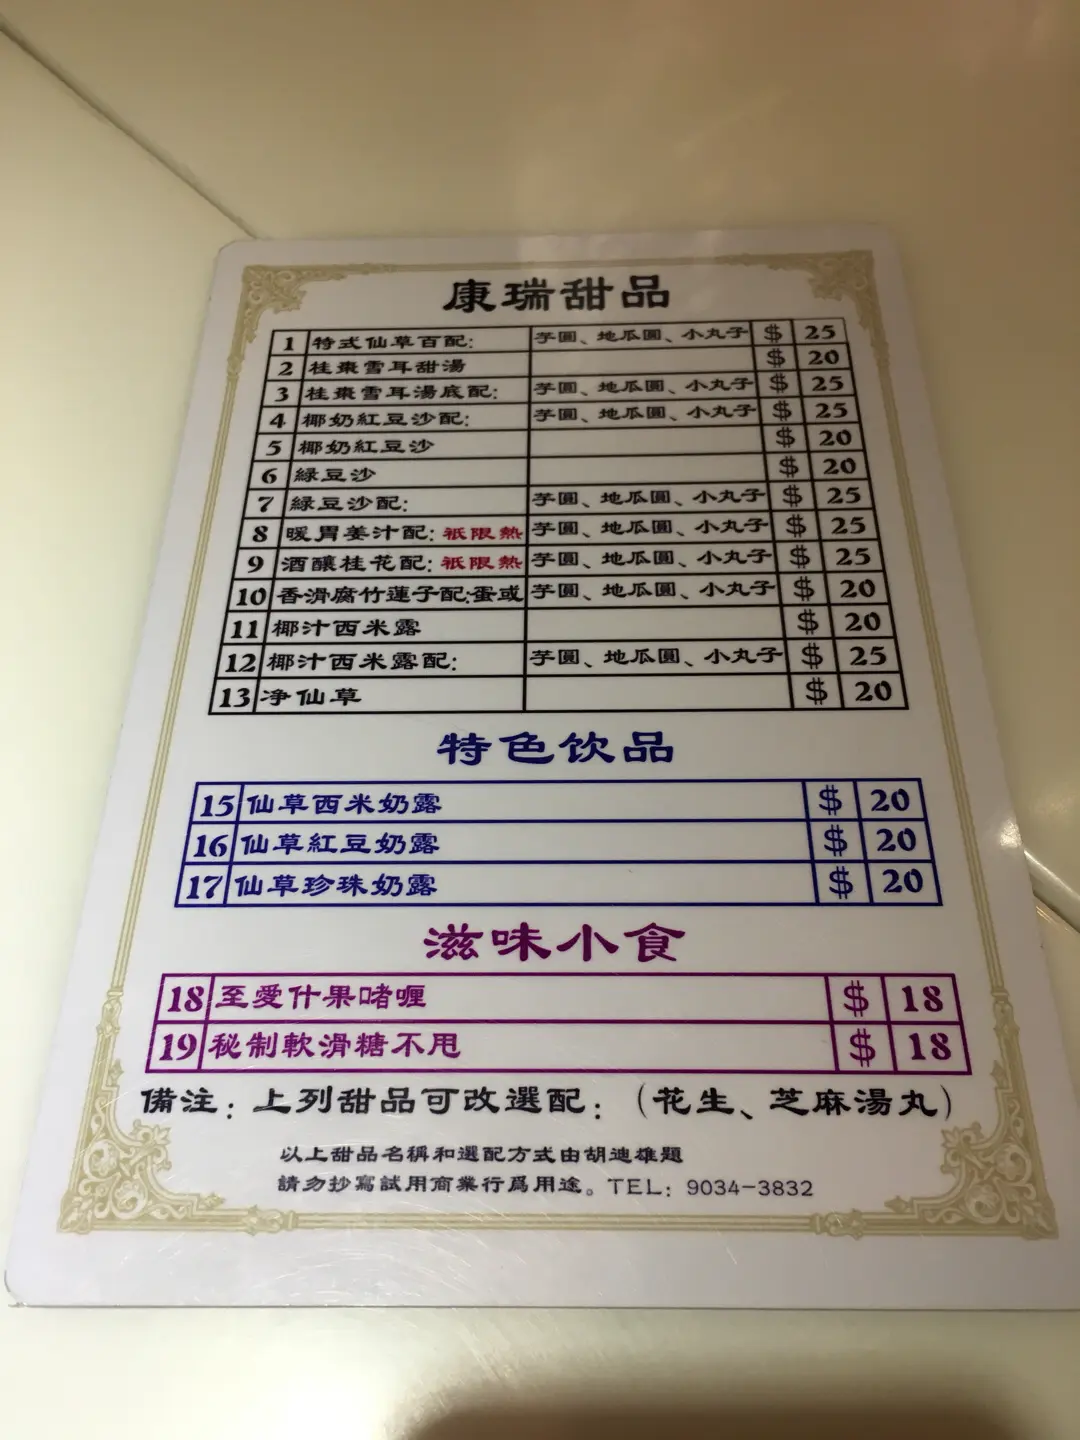 康瑞甜品
1 特式仙草百配: 芋圓、地瓜圓、小丸子 $ 25
2 桂棗雪耳甜湯 $ 20
3 桂棗雪耳湯底配: 芋圓、地瓜圓、小丸子 $ 25
4 椰奶紅豆沙配: 芋圓、地瓜圓、小丸子 $ 25
5 椰奶紅豆沙 $ 20
6 綠豆沙 $ 20
7 綠豆沙配: 芋圓、地瓜圓、小丸子 $ 25
8 暖胃姜汁配: 祇限熱 芋圓、地瓜圓、小丸子 $ 25
9 酒釀桂花配: 祇限熱 芋圓、地瓜圓、小丸子 $ 25
10 香滑腐竹蓮子配:蛋或 芋圓、地瓜圓、小丸子 $ 20
11 椰汁西米露 $ 20
12 椰汁西米露配: 芋圓、地瓜圓、小丸子 $ 25
13 净仙草 $ 20
特色饮品
15 仙草西米奶露 $ 20
16 仙草紅豆奶露 $ 20
17 仙草珍珠奶露 $ 20
滋味小食
18 至愛什果啫喱 $ 18
19 秘制軟滑糖不甩 $ 18
備注: 上列甜品可改選配: (花生、芝麻湯丸)
以上甜品名稱和選配方式由胡迪雄題
請勿抄寫試用商業行爲用途。TEL: 9034-3832